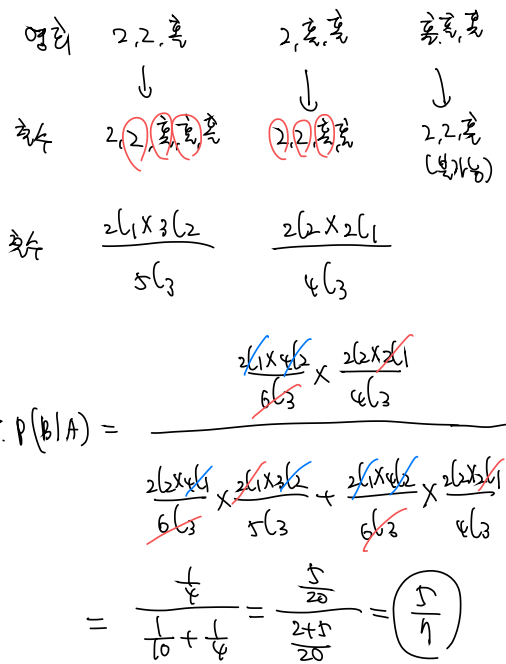 영희 2, 2, 홀 2, 홀, 홀 홀, 홀, 홀
↓ ↓ ↓
철수 2, 2, 홀, 홀, 홀 2, 2, 홀, 홀 2, 2, 홀
(불가능)
확률 2C1×3C2 / 5C3 2C2×2C1 / 4C3
∴ P(B|A) = (2C1×4C2 / 6C3 × 2C2×2C1 / 4C3) / (2C2×4C1 / 6C3 × 2C1×3C2 / 5C3 + 2C1×4C2 / 6C3 × 2C2×2C1 / 4C3)
= (1/4) / (1/10 + 1/4) = (5/20) / ((2+5)/20) = 5/7